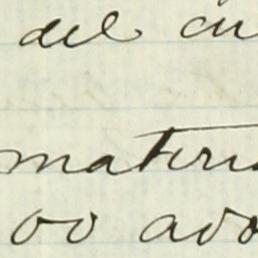 del cu
materi
oo ado